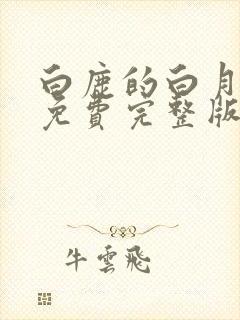 白鹿的白月
免費完整版
牛雲飛